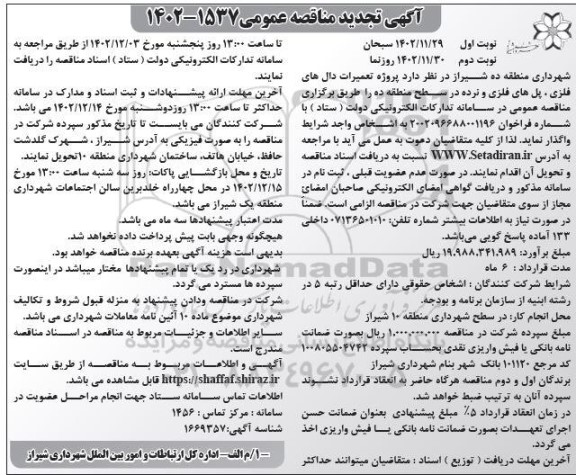 آگهی تجدید مناقصه عمومی ۱۵۳۷-۱۴۰۲
نوبت اول ۱۴۰۲/۱۱/۲۹ سبحان
نوبت دوم ۱۴۰۲/۱۱/۳۰ روزنما
شهرداری منطقه ده شیراز در نظر دارد پروژه تعمیرات دال های
فلزی ، پل های فلزی و نرده در سطح منطقه ده را طریق برگزاری
مناقصه عمومی در سامانه تدارکات الکترونیکی دولت ( ستاد ) با
شماره فراخوان ۲۰۰۲۰۹۶۶۸۸۰۰۱۱۹۶ به اشخاص واجد شرایط
واگذار نماید. لذا از کلیه متقاضیان دعوت به عمل می آید با مراجعه
به آدرس WWW.Setadiran.ir نسبت به دریافت اسناد مناقصه
و تحویل آن اقدام نمایند. در صورت عدم عضویت قبلی ، ثبت نام در
سامانه مذکور و دریافت گواهی امضای الکترونیکی صاحبان امضائ
مجاز از سوی متقاضیان جهت شرکت در مناقصه الزامی است. ضمناً
در صورت نیاز به اطلاعات بیشتر شماره تلفن: ۰۷۱۳۶۵۰۱۰۱۰ داخلی
۱۳۳ آماده پاسخ گویی می‌باشد.
مبلغ برآورد: ۱۹.۹۸۸.۳۴۱.۹۸۹ ریال
مدت قرارداد : ۶ ماه
شرایط شرکت کنندگان : اشخاص حقوقی دارای حداقل رتبه ۵ در
رشته ابنیه از سازمان برنامه و بودجه.
محل انجام کار: در سطح شهرداری منطقه ۱۰ شیراز
مبلغ سپرده شرکت در مناقصه ۱.۰۰۰.۰۰۰.۰۰۰ ریال بصورت ضمانت
نامه بانکی یا فیش واریزی نقدی بحساب سپرده ۱۰۰۸۰۵۵۰۴۷۴۲
کد مرجع ۱۰۱۱۲۰ بانک شهر بنام شهرداری شیراز
برندگان اول و دوم مناقصه هرگاه حاضر به انعقاد قرارداد نشوند
سپرده آنان به ترتیب ضبط خواهد شد.
در زمان انعقاد قرارداد ۵٪ مبلغ پیشنهادی بعنوان ضمانت حسن
اجرای تعهدات بصورت ضمانت نامه بانکی یا فیش واریزی اخذ
می گردد.
آخرین مهلت دریافت ( توزیع ) اسناد : متقاضیان میتوانند حداکثر
تا ساعت ۱۳:۰۰ روز پنجشنبه مورخ ۱۴۰۲/۱۲/۰۳ از طریق مراجعه به
سامانه تدارکات الکترونیکی دولت ( ستاد ) اسناد مناقصه را دریافت
نمایند.
آخرین مهلت ارائه پیشنهادات و ثبت اسناد و مدارک در سامانه
حداکثر تا ساعت ۱۳:۰۰ روز دوشنبه مورخ ۱۴۰۲/۱۲/۱۴ می باشد.
شرکت کنندگان می بایست تا تاریخ مذکور سپرده شرکت در
مناقصه را به صورت فیزیکی به آدرس شیراز ، شهرک گلدشت
حافظ، خیابان هاتف، ساختمان شهرداری منطقه ۱۰ تحویل نمایند.
تاریخ و محل بازگشایی پاکات: روز سه شنبه ساعت ۱۳:۰۰ مورخ
۱۴۰۲/۱۲/۱۵ در محل چهارراه خلدبرین سالن اجتماعات شهرداری
منطقه یک شیراز می باشد.
مدت اعتبار پیشنهادها سه ماه می باشد.
هیچگونه وجهی بابت پیش پرداخت داده نخواهد شد.
بدیهی است هزینه آگهی بعهده برنده مناقصه خواهد بود.
شهرداری در رد یک یا تمام پیشنهادها مختار میباشد در اینصورت
سپرده ها مسترد می گردد.
شرکت در مناقصه ودادن پیشنهاد به منزله قبول شروط و تکالیف
شهرداری موضوع ماده ۱۰ آئین نامه معاملات شهرداری می باشد.
سایر اطلاعات و جزئیات مربوط به مناقصه در اسناد مناقصه
مندرج است.
آگهی و اطلاعات مربوط به مناقصه از طریق سایت
https://shaffaf.shiraz.ir قابل مشاهده می باشد.
اطلاعات تماس سامانه ستاد جهت انجام مراحل عضویت در
سامانه : مرکز تماس : ۱۴۵۶
شناسه آگهی: ۱۶۶۹۳۵۷
۱۰/م الف- اداره کل ارتباطات و امور بین الملل شهرداری شیراز